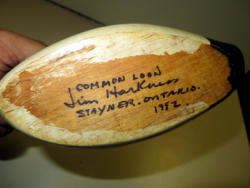 COMMON LOON
Jim Harkness
STAYNER. ONTARIO.
1982.